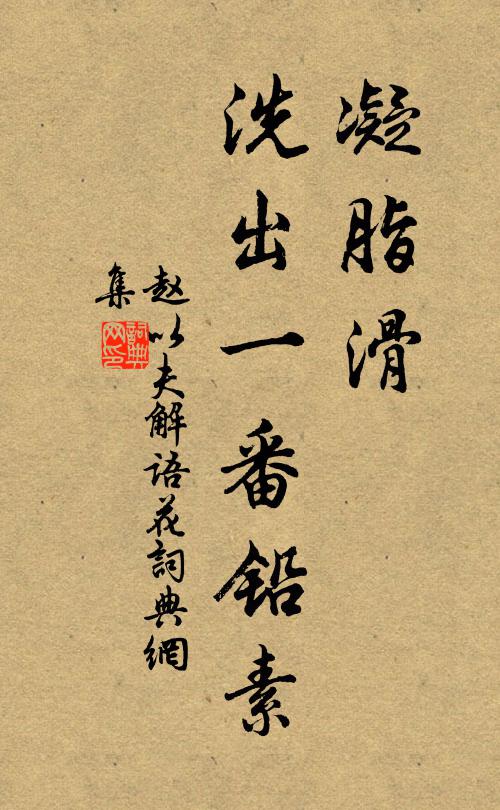 凝脂滑
洗出一番鉛素
赵以夫解语花詞典網
集
詞典
网印